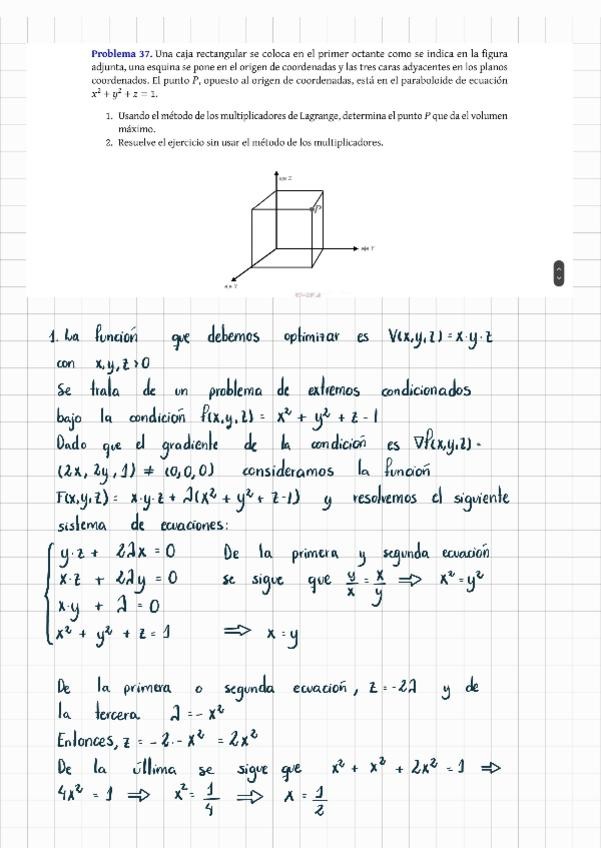 Problema 37. Una caja rectangular se coloca en el primer octante como se indica en la figura
adjunta, una esquina se pone en el origen de coordenadas y las tres caras adyacentes en los planos
coordenados. El punto P, opuesto al origen de coordenadas, está en el paraboloide de ecuación
x² + y² + z = 1.
1. Usando el método de los multiplicadores de Lagrange, determina el punto P que da el volumen
máximo.
2. Resuelve el ejercicio sin usar el método de los multiplicadores.
eje Z
P
eje Y
1. La función que debemos optimizar es V(x,y,z) = x·y·z
con x,y,z>0
Se trata de un problema de extremos condicionados
bajo la condición f(x,y,z) = x² + y² + z - 1
Dado que el gradiente de la condición es ∇f(x,y,z) =
(2x, 2y, 1) ≠ (0,0,0) consideramos la función
F(x,y,z) = x·y·z + λ(x² + y² + z - 1) y resolvemos el siguiente
sistema de ecuaciones:
y·z + 2λx = 0 De la primera y segunda ecuación
x·z + 2λy = 0 se sigue que y/x = x/y ⟹ x² = y²
x·y + λ = 0
x² + y² + z = 1 ⟹ x = y
De la primera o segunda ecuación, z = -2λ y de
la tercera λ = -x²
Entonces, z = -2·-x² = 2x²
De la última se sigue que x² + x² + 2x² = 1 ⟹
4x² = 1 ⟹ x² = 1/4 ⟹ x = 1/2